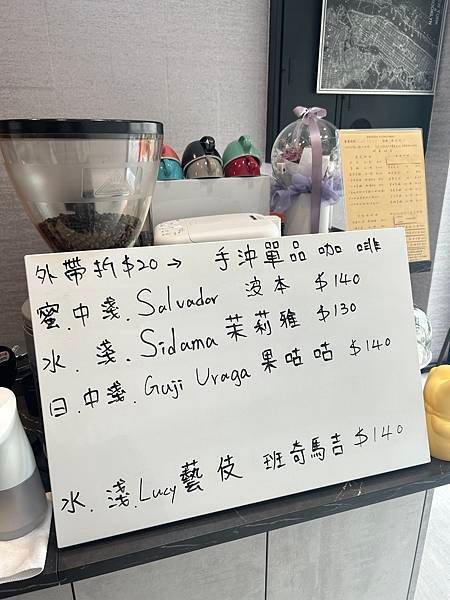 外帶折$20→ 手沖單品咖啡
蜜.中淺.Salvador 波本 $140
水.淺.Sidama 茉莉雅 $130
日.中淺.Guji Uraga 果咕咕 $140
水.淺.Lucy 藝伎 班奇馬吉 $140